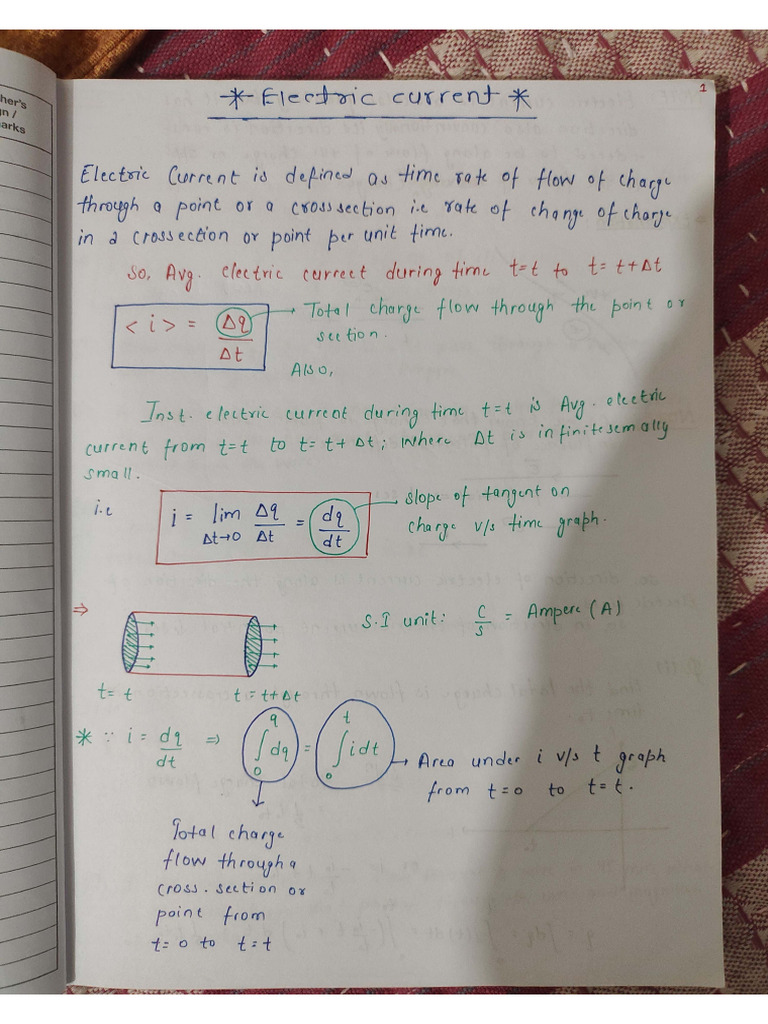 1
* Electric current *
Electric Current is defined as time rate of flow of charge
through a point or a crosssection i.e rate of change of charge
in a crossection or point per unit time.
So, Avg. electric currect during time t=t to t= t+Δt
<i> = Δq/Δt → Total charge flow through the point or
section.
Also,
Inst. electric current during time t=t is Avg. electric
current from t=t to t= t+Δt; where Δt is infinitesemally
small.
i.e i = lim Δt→0 Δq/Δt = dq/dt
slope of tangent on
charge v/s time graph.
⇒
S.I unit: C/s = Ampere (A)
t= t
t= t+Δt
* ∵ i = dq/dt ⇒ ∫₀^q dq = ∫₀^t idt
→ Area under i v/s t graph
from t=0 to t=t.
Total charge
flow through a
cross.section or
point from
t=0 to t=t